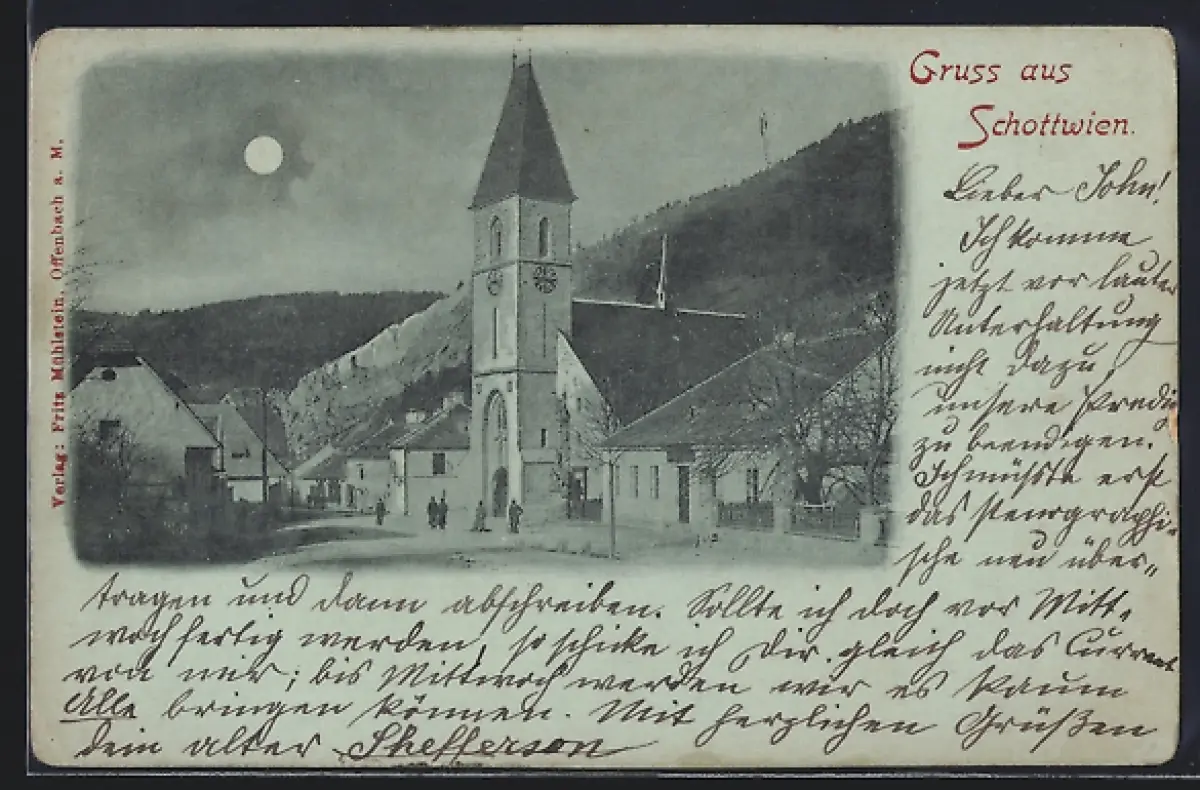 Gruss aus
Schottwien.
Verlag: Fritz Mühlstein, Offenbach a. M.
Lieber John!
Ich komme
jetzt vor lauter
Unterhaltung
nicht dazu,
unsere Predig
zu beendigen.
Ich müsste erst
das stenographi-
sche neu über-
tragen und dann abschreiben. Sollte ich doch vor Mitt-
woch fertig werden, so schicke ich Dir gleich das Current
von mir; bis Mittwoch werden wir es kaum
Alle bringen können. Mit herzlichen Grüßen
dein alter Shefferson